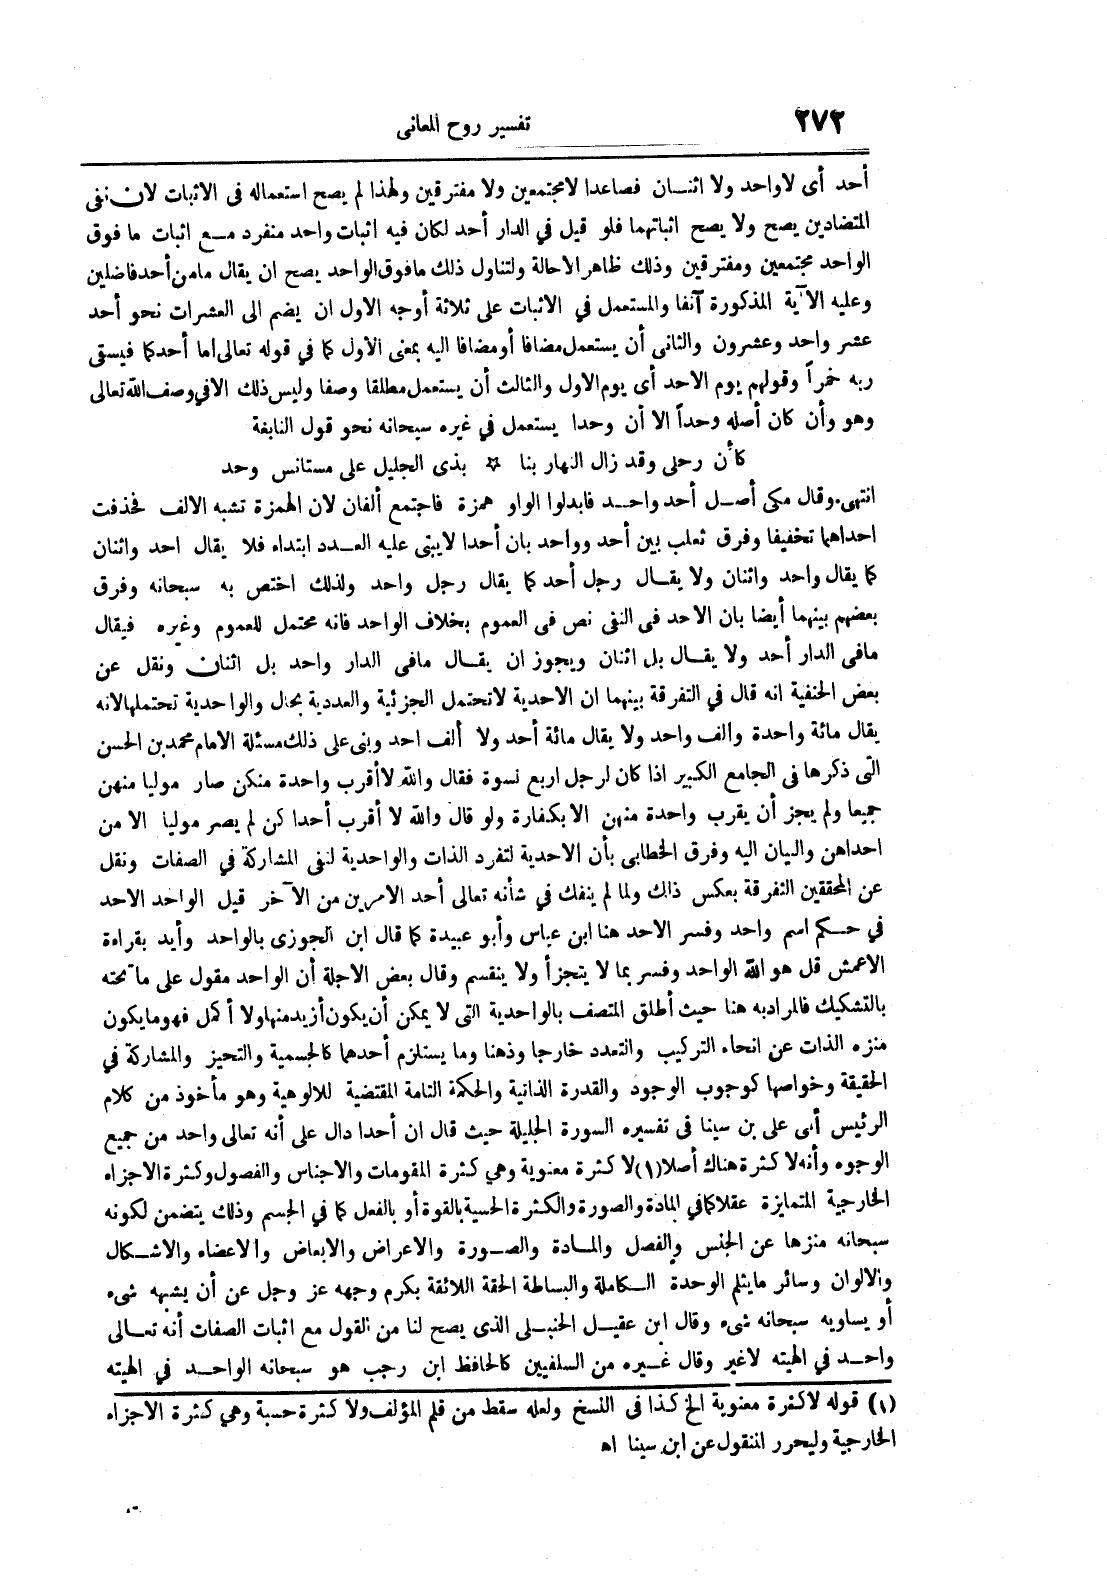 ٢٧٢
تفسير روح المعانى
أحد أى لاواحد ولا اثنان فصاعدا لامجتمعين ولا مفترقين ولهذا لم يصح استعماله فى الاثبات لان نفى
المتضادين يصح ولا يصح اثباتهما فلو قيل في الدار أحد لكان فيه اثبات واحد منفرد مع اثبات ما فوق
الواحد مجتمعين ومفترقين وذلك ظاهر الاحالة ولتناول ذلك مافوق الواحد يصح ان يقال مامن أحد فاضلين
وعليه الآية المذكورة آنفا والمستعمل في الاثبات على ثلاثة أوجه الاول ان يضم الى العشرات نحو أحد
عشر واحد وعشرون والثانى أن يستعمل مضافا أو مضافا اليه بمعنى الاول كما في قوله تعالى اما أحدكما فيسقى
ربه خمراً وقولهم يوم الاحد أى يوم الاول والثالث أن يستعمل مطلقا وصفا وليس ذلك الا في وصف الله تعالى
وهو وأن كان أصله وحداً الا أن وحدا يستعمل في غيره سبحانه نحو قول النابغة
كأن رحلى وقد زال النهار بنا ☆ بذى الجليل على مستانس وحد
انتهى. وقال مكى أصل أحد واحد فابدلوا الواو همزة فاجتمع ألفان لان الهمزة تشبه الالف فحذفت
احداهما تخفيفا وفرق ثعلب بين أحد وواحد بان أحدا لايبنى عليه العدد ابتداء فلا يقال احد واثنان
كما يقال واحد واثنان ولا يقال رجل أحد كما يقال رجل واحد ولذلك اختص به سبحانه وفرق
بعضهم بينهما أيضا بان الاحد فى النفى نص فى العموم بخلاف الواحد فانه محتمل للعموم وغيره فيقال
مافى الدار أحد ولا يقال بل اثنان ويجوز ان يقال مافى الدار واحد بل اثنان ونقل عن
بعض الحنفية انه قال في التفرقة بينهما ان الاحدية لاتحتمل الجزئية والعددية بحال والواحدية تحتملها لانه
يقال مائة واحدة وألف واحد ولا يقال مائة أحد ولا ألف احد وبنى على ذلك مسئلة الامام محمد بن الحسن
التى ذكرها فى الجامع الكبير اذا كان لرجل اربع نسوة فقال والله لا أقرب واحدة منكن صار موليا منهن
جميعا ولم يجز أن يقرب واحدة منهن الا بكفارة ولو قال والله لا أقرب أحدا كن لم يصر موليا الا من
احداهن والبيان اليه وفرق الخطابى بأن الاحدية لتفرد الذات والواحدية لنفى المشاركة في الصفات ونقل
عن المحققين التفرقة بعكس ذلك ولما لم ينفك في شأنه تعالى أحد الامرين من الآخر قيل الواحد الاحد
في حكم اسم واحد وفسر الاحد هنا ابن عباس وأبو عبيدة كما قال ابن الجوزى بالواحد وأيد بقراءة
الاعمش قل هو الله الواحد وفسر بما لا يتجزأ ولا ينقسم وقال بعض الاجلة أن الواحد مقول على ما تحته
بالتشكيك فالمراد به هنا حيث أطلق المتصف بالواحدية التى لا يمكن أن يكون أزيد منها ولا أكمل فهو ما يكون
منزه الذات عن انحاء التركيب والتعدد خارجا وذهنا وما يستلزم أحدهما كالجسمية والتحيز والمشاركة في
الحقيقة وخواصها كوجوب الوجود والقدرة الذاتية والحكمة التامة المقتضية للالوهية وهو مأخوذ من كلام
الرئيس أبى على بن سينا فى تفسيره السورة الجليلة حيث قال ان أحدا دال على أنه تعالى واحد من جميع
الوجوه وأنه لا كثرة هناك أصلا (١) لا كثرة معنوية وهي كثرة المقومات والاجناس والفصول وكثرة الاجزاء
الخارجية المتمايزة عقلا كما في المادة والصورة والكثرة الحسية بالقوة أو بالفعل كما في الجسم وذلك يتضمن لكونه
سبحانه منزها عن الجنس والفصل والمادة والصورة والاعراض والابعاض والاعضاء والاشكال
والالوان وسائر مايثلم الوحدة الكاملة والبساطة الحقة اللائقة بكرم وجهه عز وجل عن أن يشبهه شىء
أو يساويه سبحانه شىء وقال ابن عقيل الحنبلى الذى يصح لنا من القول مع اثبات الصفات أنه تعالى
واحد في الهيته لاغير وقال غيره من السلفيين كالحافظ ابن رجب هو سبحانه الواحد في الهيته
(١) قوله لاكثرة معنوية الخ كذا فى النسخ ولعله سقط من قلم المؤلف ولا كثرة حسية وهي كثرة الاجزاء
الخارجية وليحرر المنقول عن ابن سينا اه